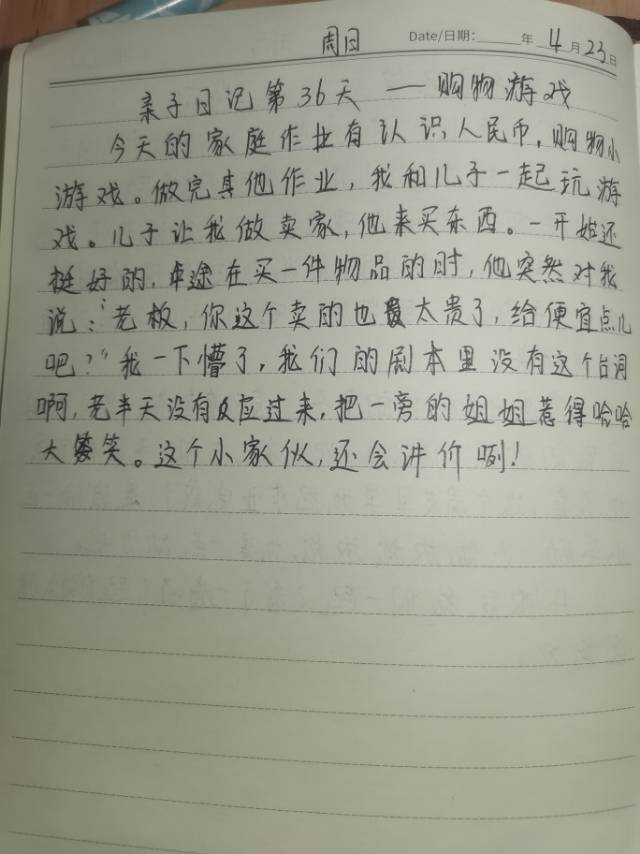 周日 Date/日期: 年 4月23日
亲子日记第36天 ——购物游戏
今天的家庭作业有认识人民币,购物小
游戏。做完其他作业,我和儿子一起玩游
戏。儿子让我做卖家,他来买东西。一开始还
挺好的,卓途在买一件物品的时,他突然对我
说:“老板,你这个卖的也太贵了,给便宜点儿
吧?”我一下懵了,我们的剧本里没有这个台词
啊,老半天没有反应过来,把一旁的姐姐惹得哈哈
大笑。这个小家伙,还会讲价咧!